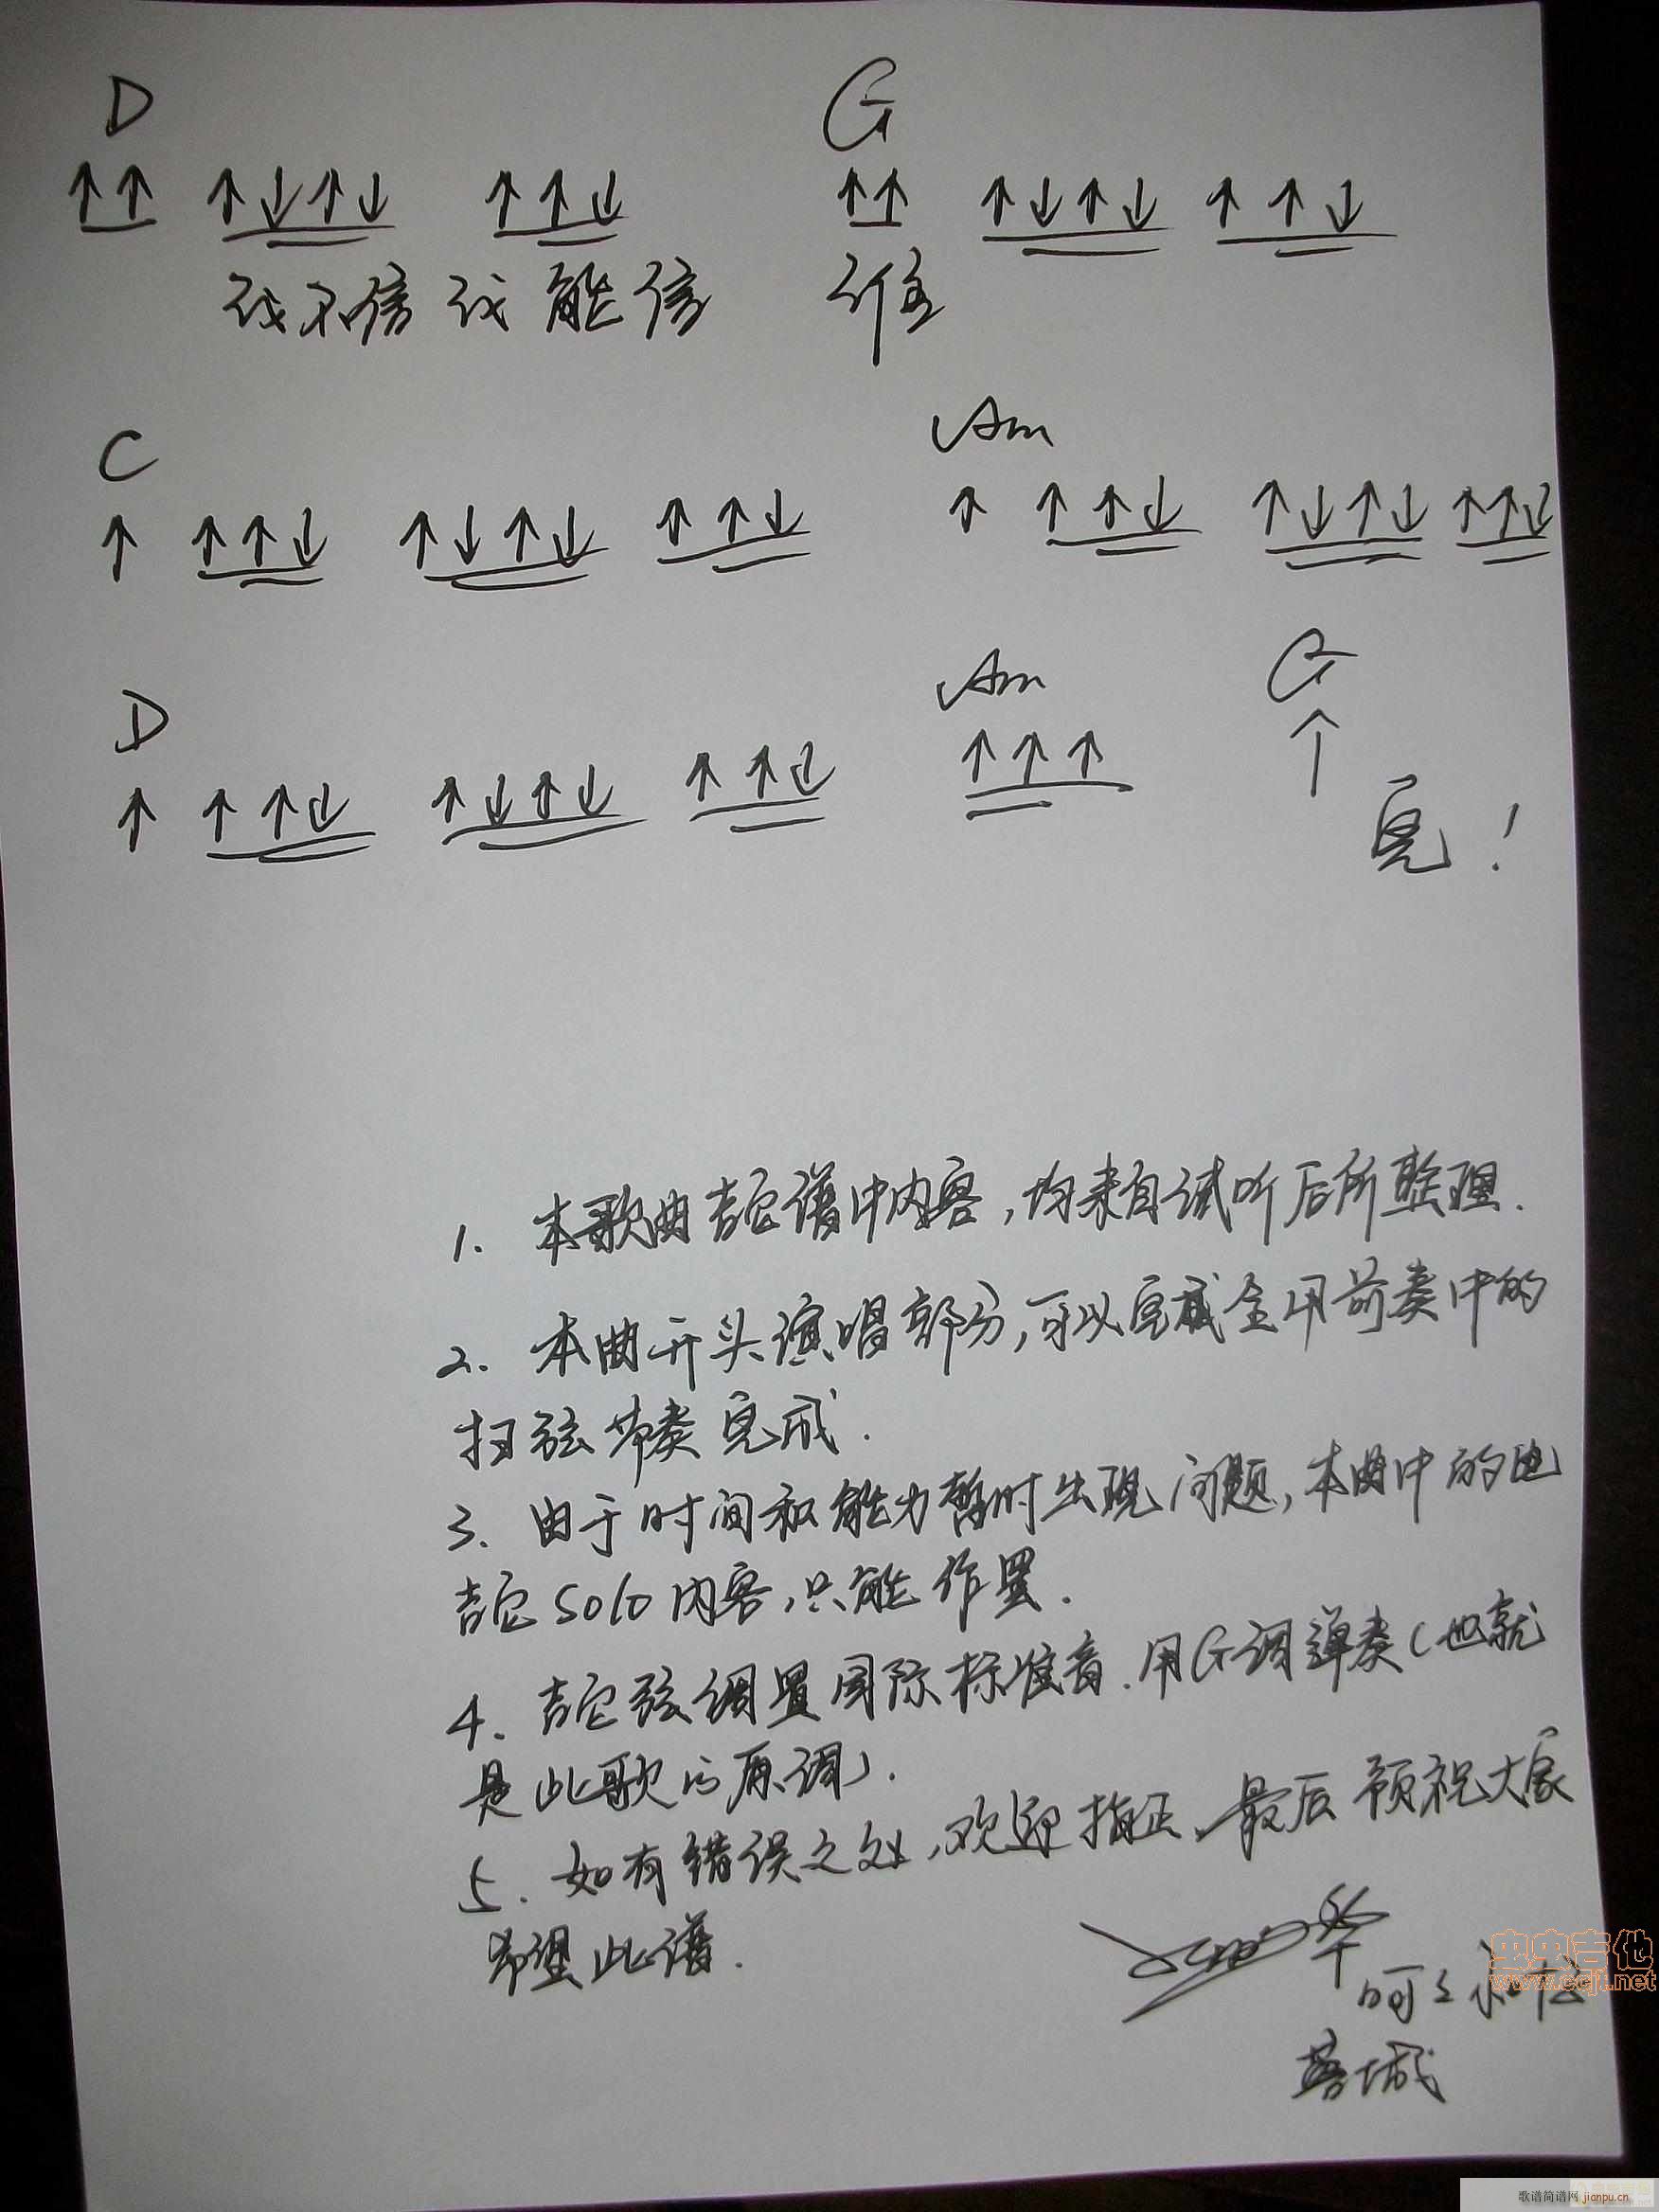 D G
↑↑ ↑↓↑↓ ↑↑↓ ↑↑ ↑↓↑↓ ↑↑↓
我不信 我能信 谁
C Am
↑ ↑↑↓ ↑↓↑↓ ↑↑↓ ↑ ↑↑↓ ↑↓↑↓ ↑↑↓
D Am G
↑ ↑↑↓ ↑↓↑↓ ↑↑↓ ↑↑↑ ↑
完!
1. 本歌曲吉它谱中内容,均来自试听后所整理.
2. 本曲开头演唱部分,可以完成全用前奏中的
扫弦节奏完成.
3. 由于时间和能力暂时出现问题,本曲中的电
吉它Solo内容,只能作罢.
4. 吉它弦调置国际标准音.用G调弹奏(也就
是此歌的原调).
5. 如有错误之处,欢迎指正、最后预祝大家
希望此谱.
蓉城
虫虫吉他
www.ccjt.net
歌谱简谱网 jianpu.cn